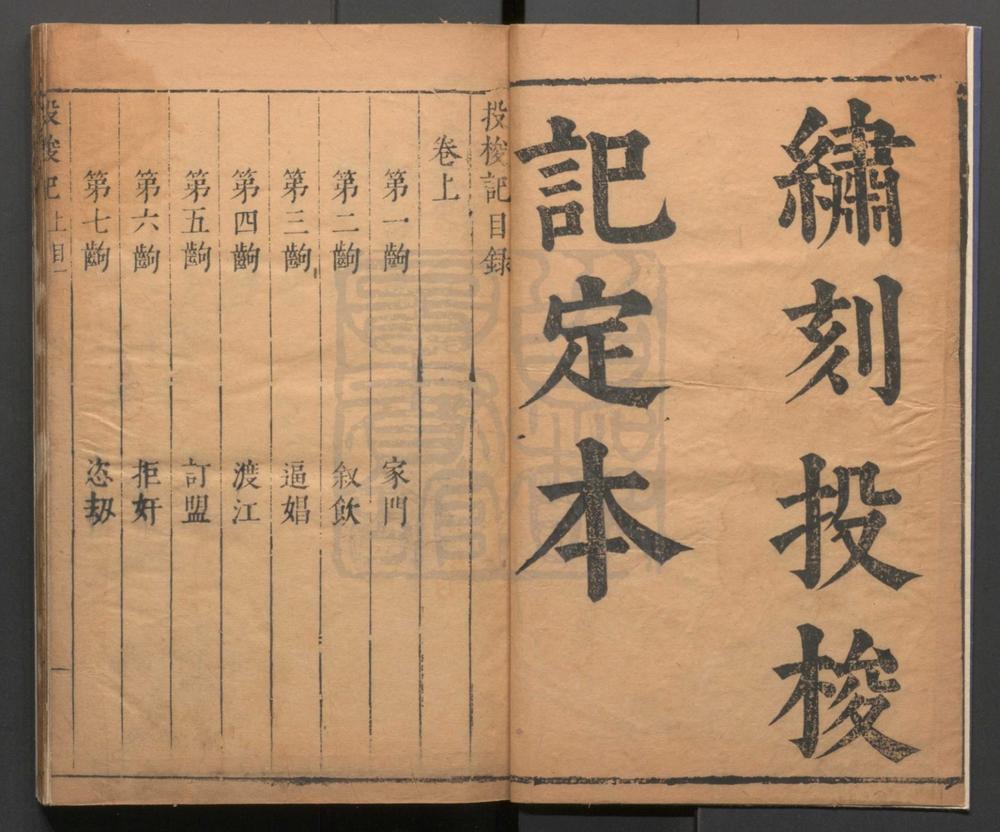 繡刻投梭
記定本
投梭記目錄
卷上
第一齣 家門
第二齣 叙飲
第三齣 逼娼
第四齣 渡江
第五齣 訂盟
第六齣 拒奸
第七齣 恣劫
投梭記 上目 一